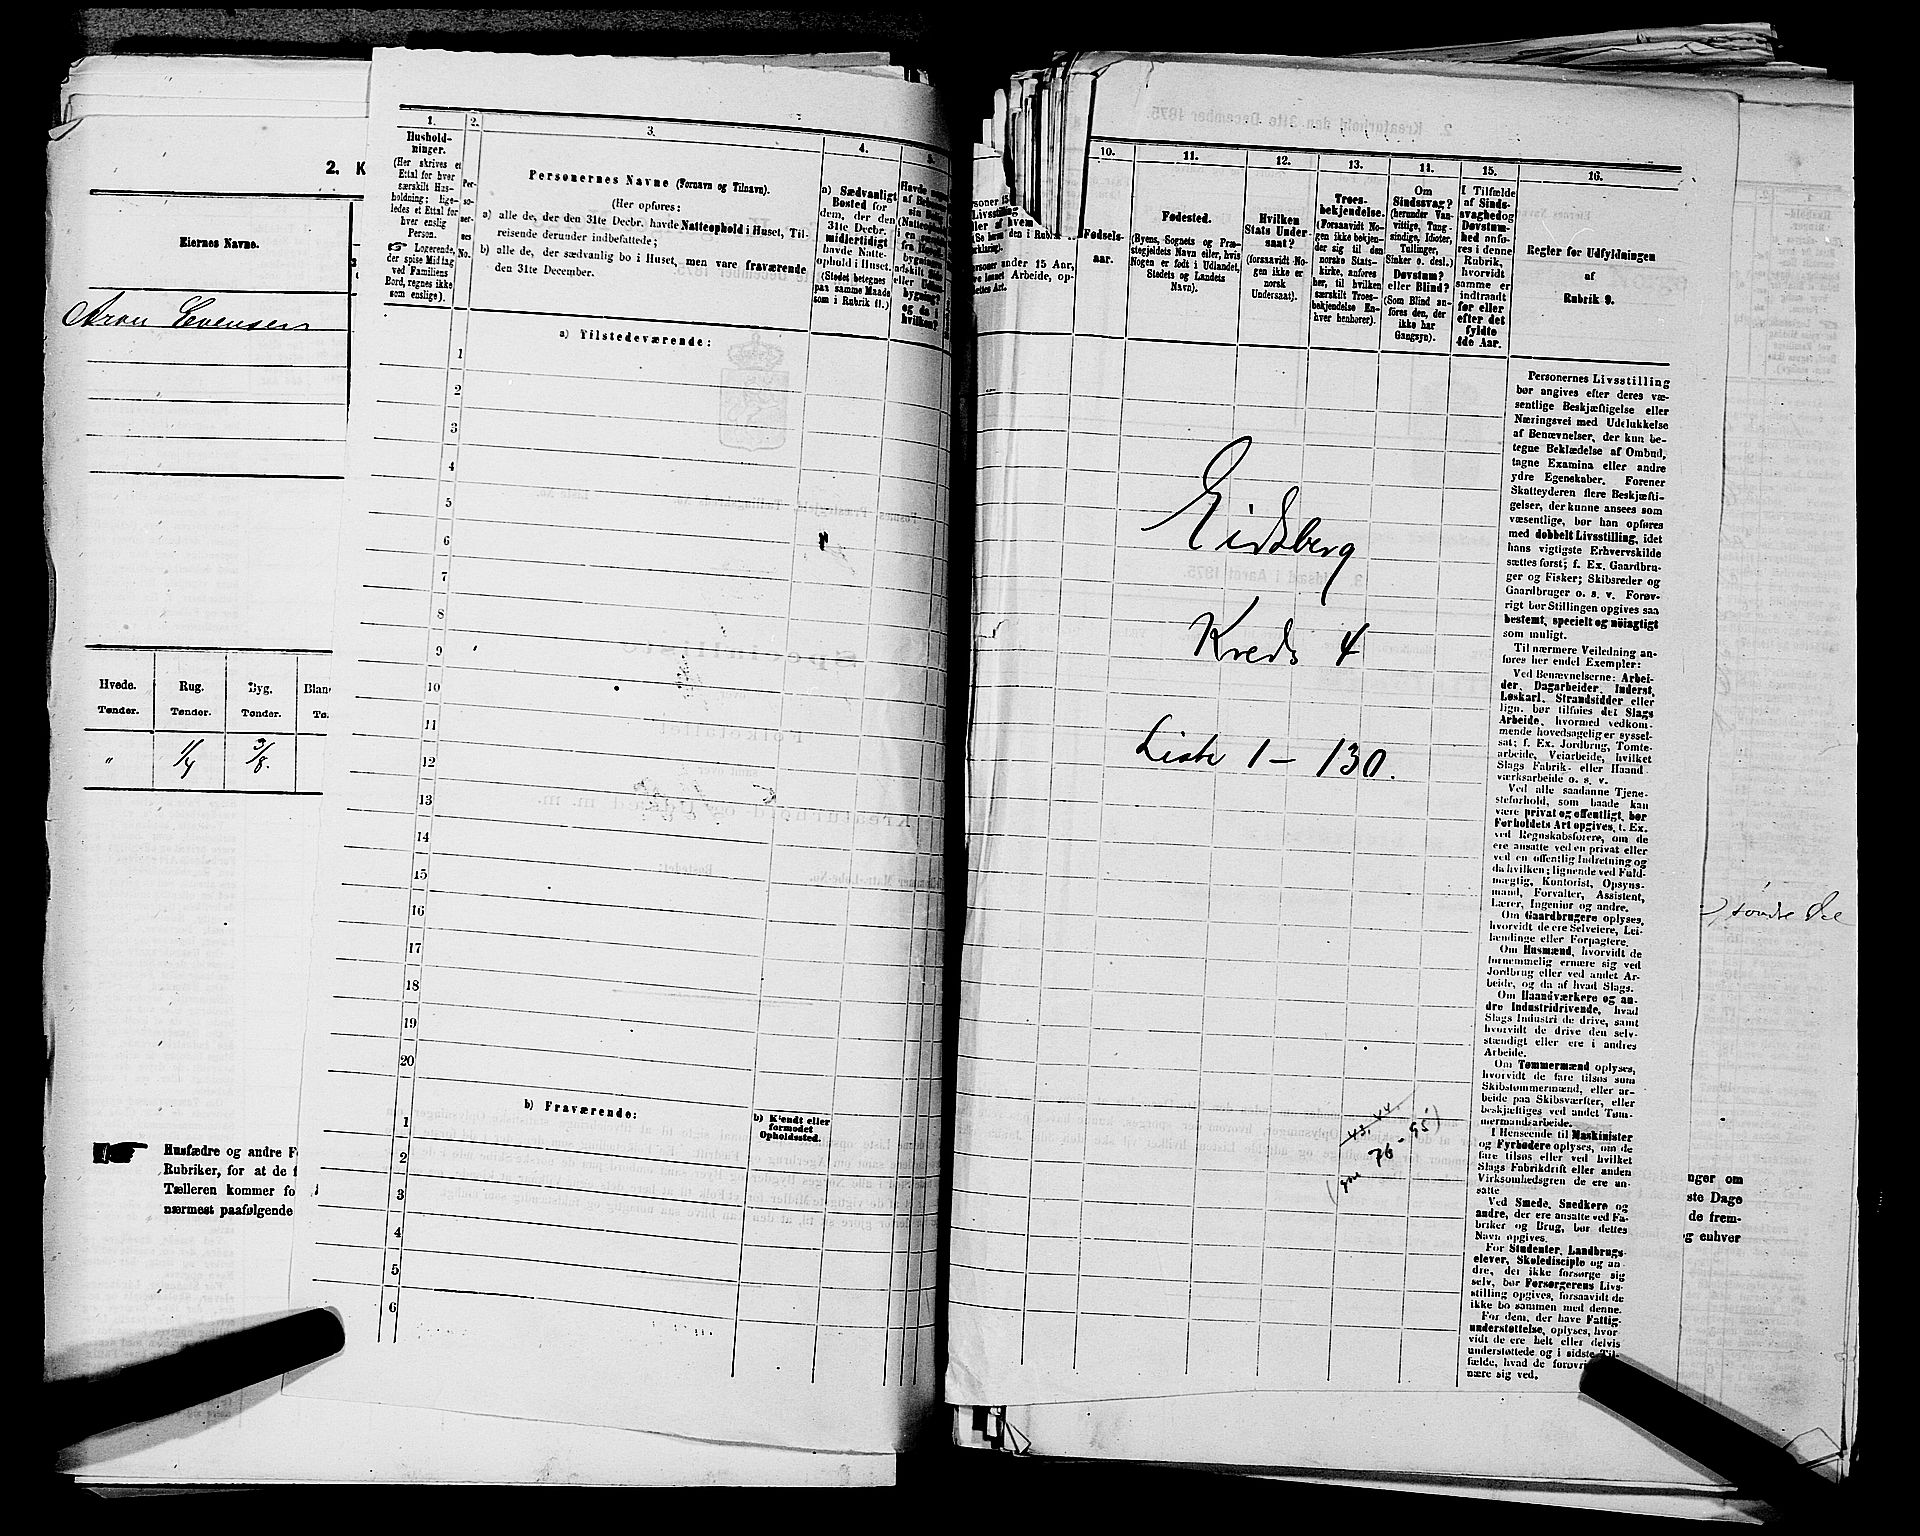 2. K
Eiernes Navne.
Aron Evensen
Hvede.
Tønder.
Rug.
Tønder.
Byg.
Tønder.
Blan
Tø.
"
1/4
3/8.
Husfædre og andre F
Rubriker, for at de f
Tælleren kommer fo
nærmest paafølgende
1.
Hushold-
ninger.
(Her skrives et
Ettal for hver
særskilt Hus-
holdning; lige-
ledes et Ettal for
hver enslig
Person.
☞ Logerende,
der spise Middag
ved Familiens
Bord, regnes ikke
som enslige).
2.
Per-
so-
ner-
nes
No.
3.
Personernes Navne (Fornavn og Tilnavn).
(Her opføres:
a) alle de, der den 31te Decbr. havde Natteophold i Huset, Til-
reisende derunder indbefattede;
b) alle de, der sædvanlig bo i Huset, men vare fraværende
den 31te December.
4.
a) Sædvanligt
Bosted for
dem, der den
31te Decbr.
midlertidigt
havde Natte-
ophold i Huset.
(Stedet betegnes
paa samme Maade
som i Rubrik 11.)
5.
a) Tilstedeværende:
1
2
3
4
5
6
7
8
9
10
11
12
13
14
15
16
17
18
19
20
b) Fraværende:
b) Kjendt eller
formodet
Opholdssted.
1
2
3
4
5
6
10.
Fødsels-
aar.
11.
Fødested.
(Byens, Sognets og Præ-
stegjeldets Navn eller, hvis
Nogen er født i Udlandet,
Stedets og Landets
Navn).
12.
Hvilken
Stats Under-
saat?
(forsaavidt No-
gen ikke er
norsk
Undersaat).
13.
Troes-
bekjendelse.
(Forsaavidt No-
gen ikke bekjen-
der sig til den
norske Stats-
kirke, anføres
her, til hvilken
særskilt Troes-
bekjendelse En-
hver henhører).
14.
Om
Sindssvag?
(herunder Van-
vittige, Tung-
sindige, Idioter,
Tullinger,
Sinker o. desl.).
Døvstum?
eller Blind?
(Som Blind an-
føres den, der
ikke har
Gangsyn).
15.
I Tilfælde
af Sinds-
svaghed og
Døvstum-
hed anfø-
res i denne
Rubrik,
hvorvidt
samme er
indtraadt
før eller
efter det
fyldte
4de Aar.
16.
Regler for Udfyldningen
af
Rubrik 9.
Eidsberg
Kreds 4
Liste 1 – 130.
43. 44.
76 - 95)
Personernes Livsstilling
bør angives efter deres væ-
sentlige Beskjæftigelse eller
Næringsvei med Udelukkelse
af Benævnelser, der kun be-
tegne Beklædelse af Ombud,
tagne Examina eller andre
ydre Egenskaber. Forener
Skatteyderen flere Beskjæfti-
gelser, der kunne ansees som
væsentlige, bør han opføres
med dobbelt Livsstilling, idet
hans vigtigste Erhvervskilde
sættes først; f. Ex. Gaardbru-
ger og Fisker; Skibsreder og
Gaardbruger o. s. v. Forøv-
rigt bør Stillingen opgives saa
bestemt, specielt og nøiagtigt
som muligt.
Til nærmere Veiledning an-
føres her endel Exempler:
Ved Benævnelserne: Arbei-
der, Dagarbeider, Inderst,
Løskarl, Strandsidder eller
lign. bør tilføies det Slags
Arbeide, hvormed vedkom-
mende hovedsagelig er syssel-
sat; f. Ex. Jordbrug, Tomte-
arbeide, Veiarbeide, hvilket
Slags Fabrik- eller Haand
værksarbeide o. s. v.
Ved alle saadanne Tjene-
steforhold, som baade kan
være privat og offentligt, bør
Forholdets Art opgives, t. Ex.
ved Regnskabsførere, om de
ere ansatte ved en privat eller
ved en offentlig Indretning og
da hvilken; lignende ved Fuld-
mægtig, Kontorist, Opsyns-
mand, Forvalter, Assistent,
Lærer, Ingeniør og andre.
Om Gaardbrugere oplyses,
hvorvidt de ere Selveiere, Lei-
lændinge eller Forpagtere.
Om Husmænd, hvorvidt de
fornemmelig ernære sig ved
Jordbrug eller ved andet Ar-
beide, og da af hvad Slags.
Om Haandværkere og an-
dre Industridrivende, hvad
Slags Industri de drive, samt
hvorvidt de drive den selv-
stændigt eller ere i andres
Arbeide.
Om Tømmermænd oplyses,
hvorvidt de fare tilsøs som
Skibstømmermænd, eller ar-
beide paa Skibsværfter, eller
beskjæftiges ved andet Tøm-
mermandsarbeide.
I Henseende til Maskinister
og Fyrbødere oplyses, om de
fare tilsøs eller ved hvilket
Slags Fabrikdrift eller anden
Virksomhedsgren de ere an-
satte
Ved Smede, Snedkere og
andre, der ere ansatte ved Fa-
briker og Brug, bør dettes
Navn opgives.
For Studenter, Landbrugs-
elever, Skoledisciple og an-
dre, der ikke forsørge sig
selv, bør Forsørgerens Livs-
stilling opgives, forsaavidt de
ikke bo sammen med denne.
For dem, der have Fattig-
understøttelse, oplyses, hvor
vidt de ere helt eller delvis
understøttede og i sidste Til-
fælde, hvad de forøvri
nære sig ved.
nger om
ste Dage
de frem-
g enhver